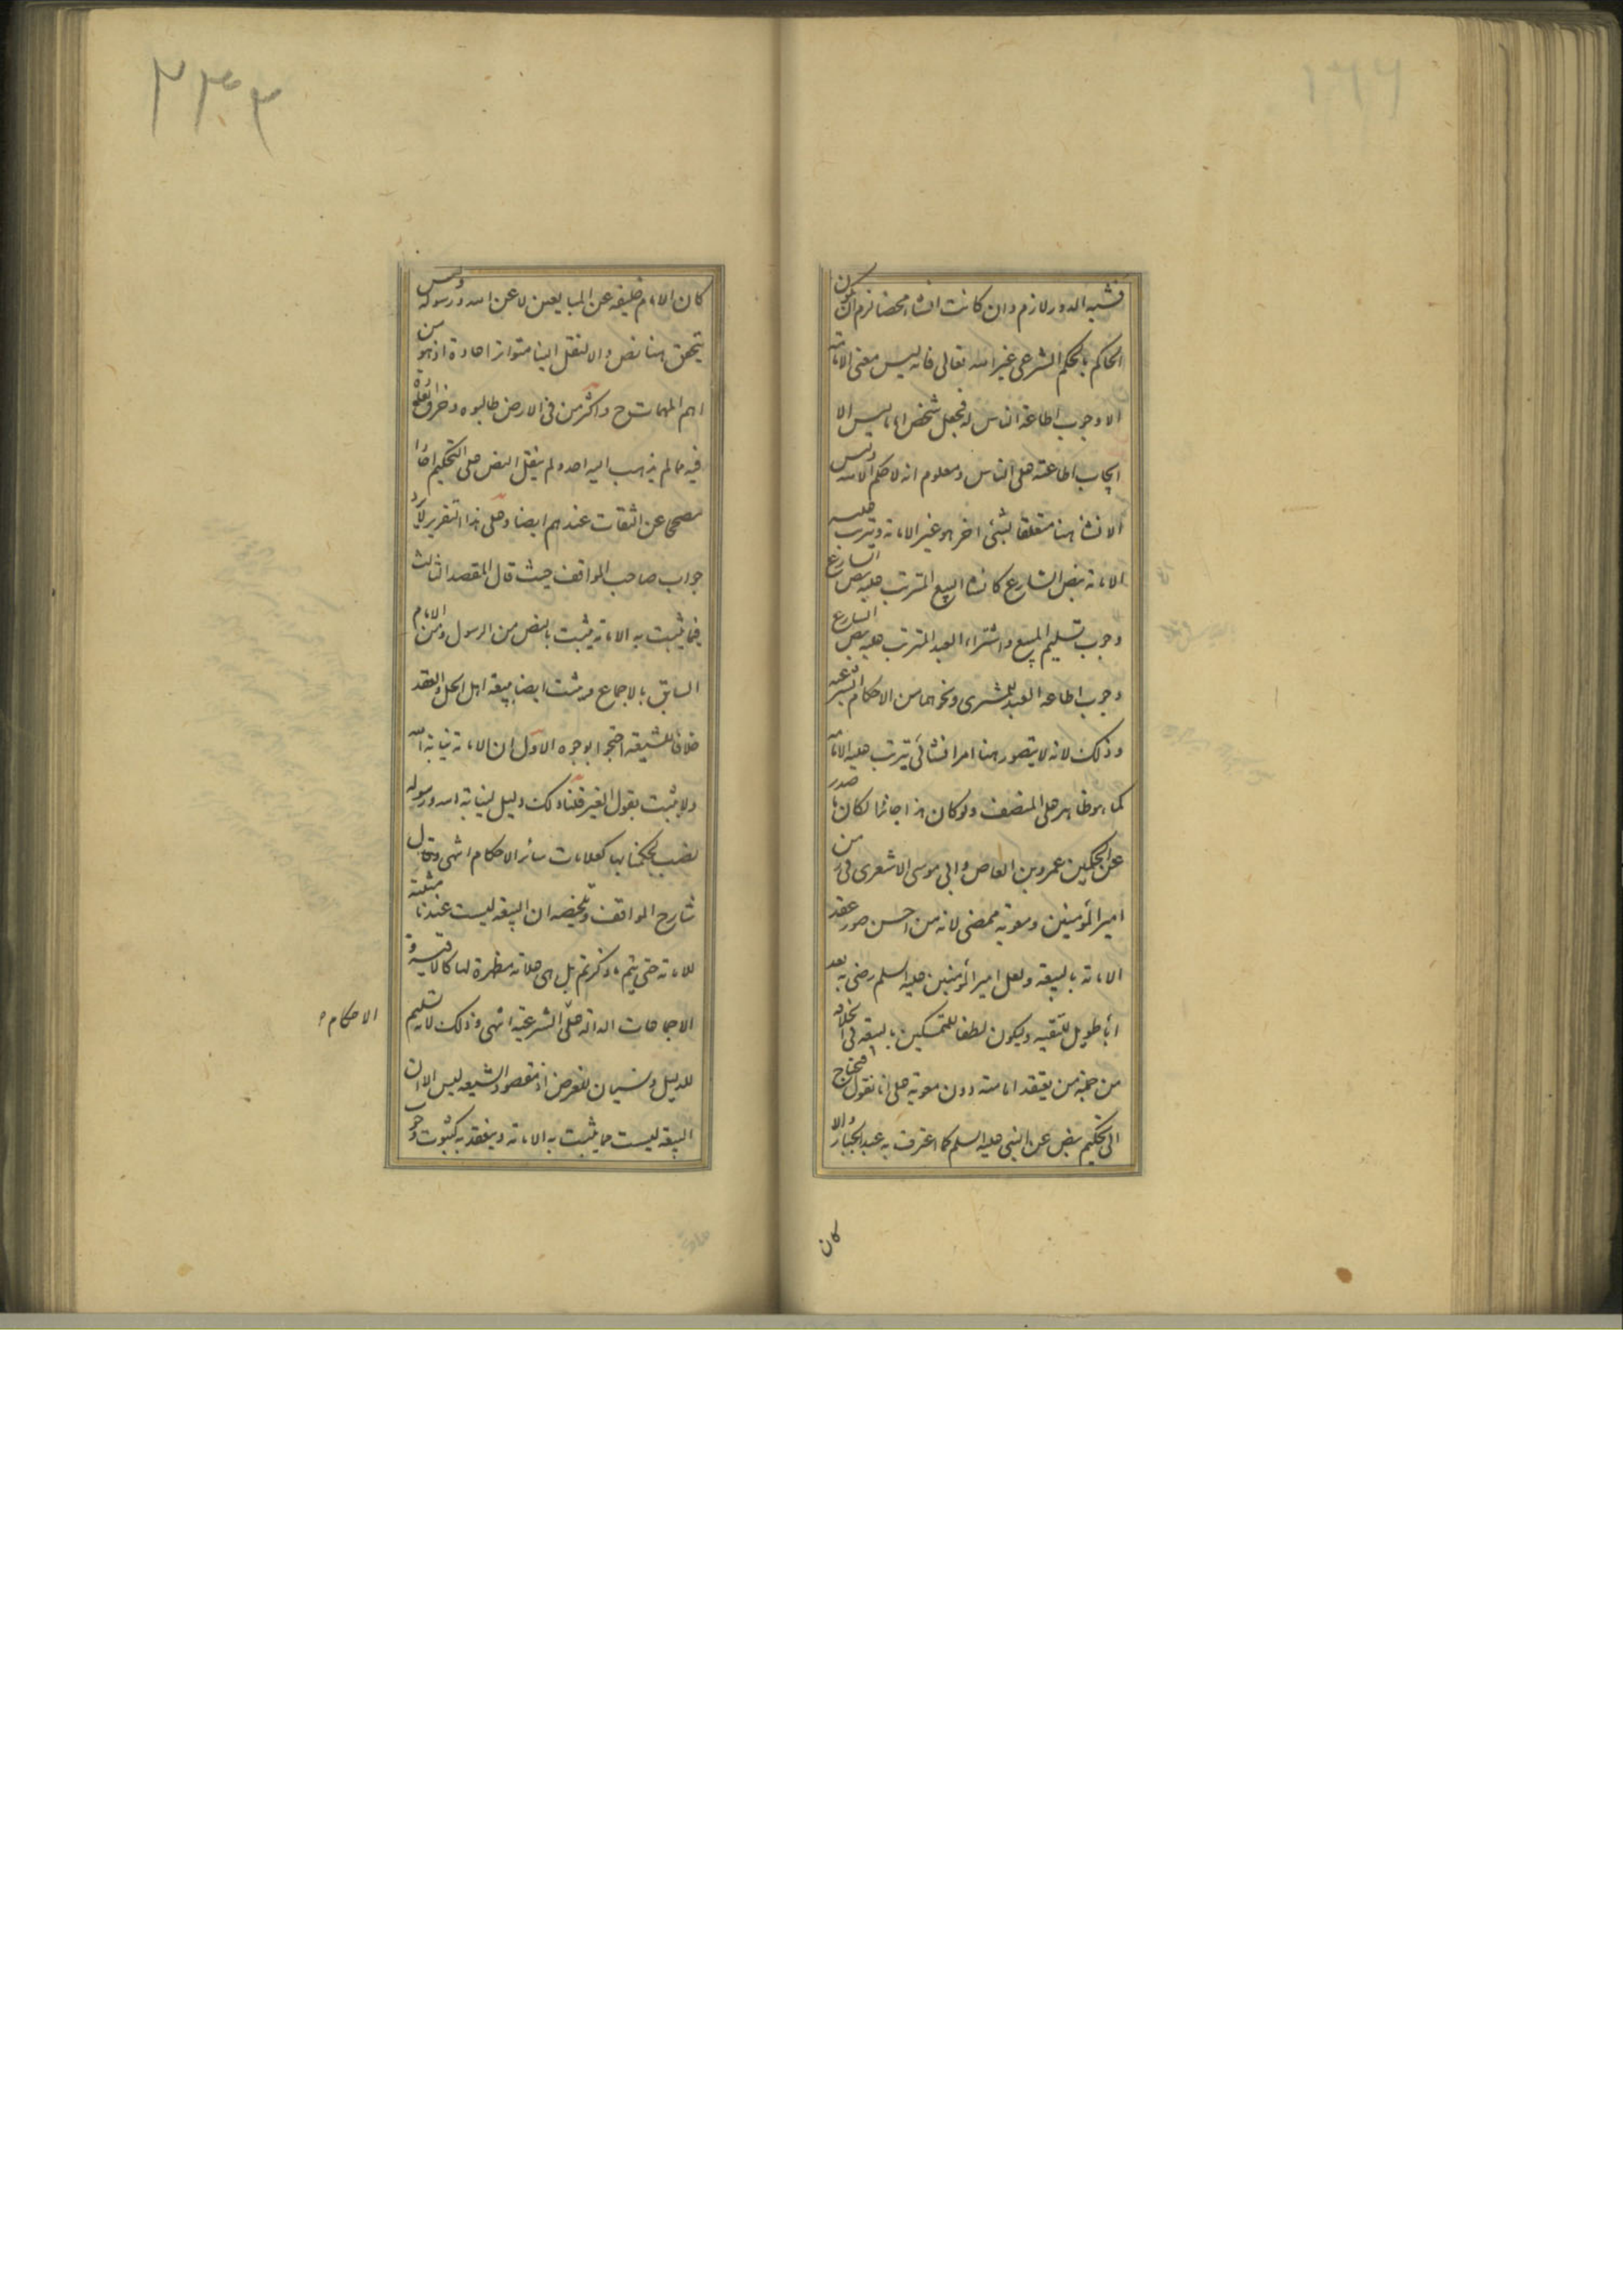 ١٦٦
فشبه الدور لازم وان كانت انشاء محضا لزم ان يكون
الحاكم بالحكم الشرعى غير الله تعالى فانه ليس معنى الامامة
الا وجوب اطاعة الناس له فجعل شخص اماما ليس الا
ايجاب اطاعته على الناس ومعلوم انه لا حكم الا لله وليس
الانشاء هنا متعلقا بشئ اخر هو غير الامامة ويترتب عليه
الامامة بنص الشارع كانشاء البيع المترتب عليه بنص الشارع
وجوب تسليم المبيع واشتراء العبد المترتب عليه بنص الشارع
وجوب اطاعة العبد للمشترى ونحوهما من الاحكام الشرعية
وذلك لانه لا يتصور هنا امر انشائى يترتب عليه الامامة
كما هو ظاهر على المنصف ولو كان هذا جائزا لكان ما صدر
عن الحكمين عمرو بن العاص وابى موسى الاشعرى فى من
امير المؤمنين ومعوية ممضى لانه من احسن صور عقد
الامامة بالبيعة ولعل امير المؤمنين عليه السلم رضى به بعد
طويل للتقية وليكون لطفا للمتمسكين بالبيعة فى الخلافة
من جهة من يعتقد امامته دون معوية على انا نقول احتاج
الى تحكيم بنص عن النبى عليه السلم كما اعترف به عبد الجبار والا
كان
٣٣٢
كان الامام خليفة عن المبايعين لا عن الله ورسوله وليس
يتحقق هنا نص والا لنقل الينا متواترا عادة اذ هو من
اهم المهمات واكثر من فى الارض طالبوه وخرق العادة
فيه مما لم يذهب اليه احد ولم ينقل النص على التحكيم احادا
مصححا عن الثقات عندهم ايضا وعلى هذا التقرير لا يرد
جواب صاحب المواقف حيث قال المقصد الثالث
فيما يثبت به الامامة يثبت بالنص من الرسول ومن الامام
السابق بالاجماع ويثبت ايضا ببيعة اهل الحل والعقد
خلافا للشيعة احتجوا بوجوه الاول ان الامامة نيابة الله
ولا يثبت بقول الغير قلنا ذلك دليل لنيابة الله ورسوله
نصب لحكمنا بها كعلامات سائر الاحكام انتهى وقال
شارح المواقف وتلخيصه ان البيعة ليست عندنا مثبتة
للامامة حتى يتم ما ذكرتم بل هى علامة مظهرة لها كالاقيسة و
الاجماعات الدالة على الشرعية انتهى وذلك لانه تسليم
الاحكام
للدليل ونسيان للغرض اذ مقصود الشيعة ليس الا ان
البيعة ليست مما يثبت به الامامة وينعقد به كثبوت وجوب